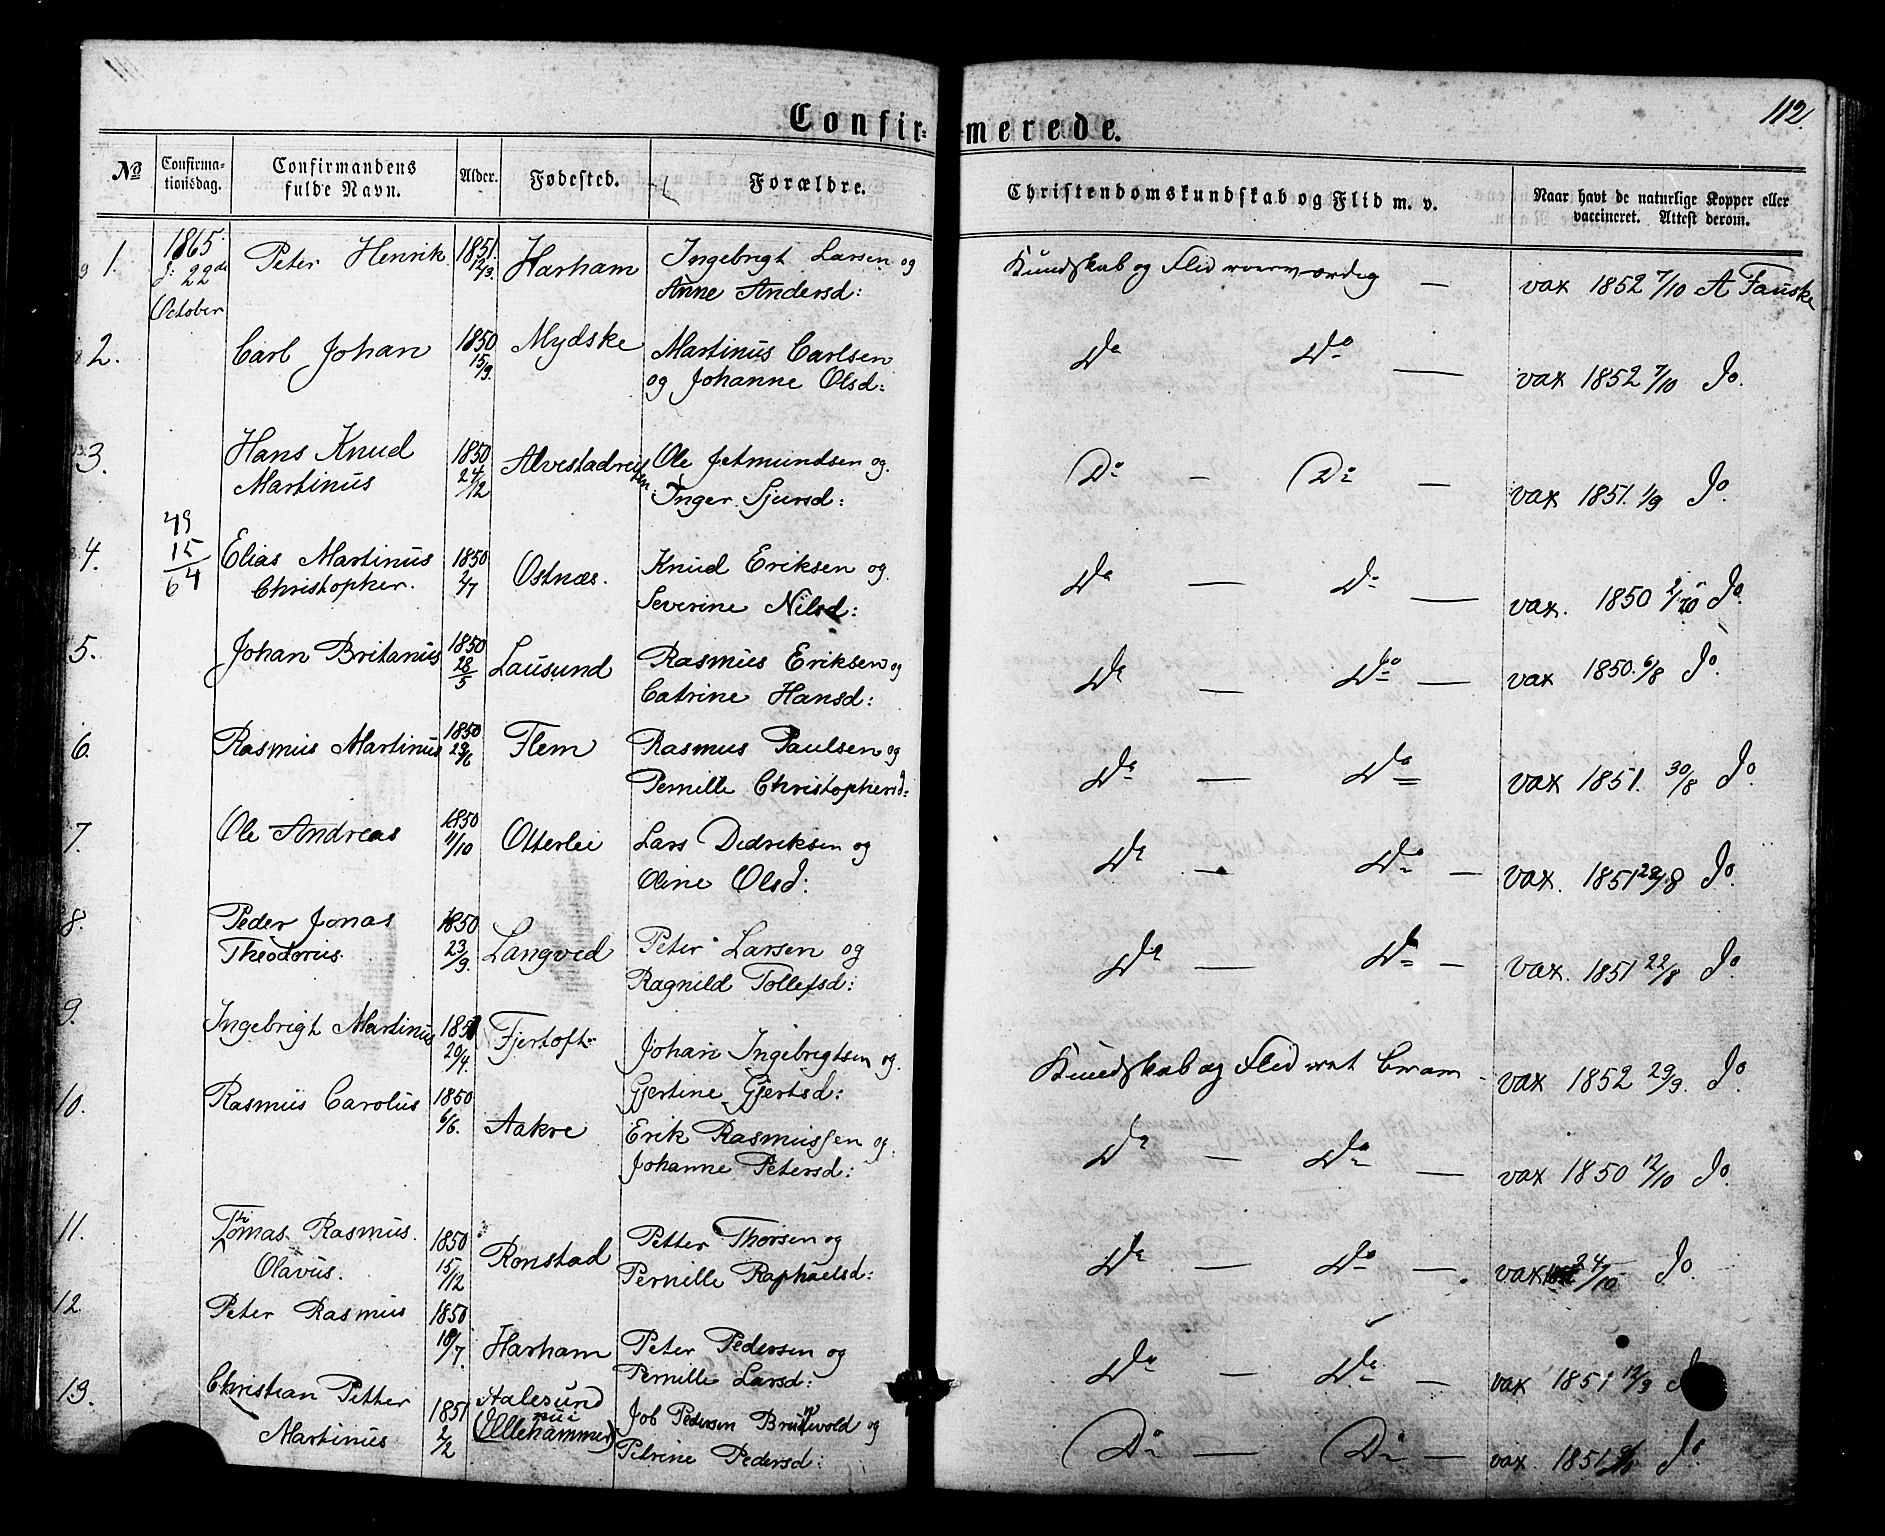 112.
Confir- merede.
No Confirma-tionsdag. Confirmandens fulde Navn. Alder. Fødested. Forældre. Christendomskundskab og Flid m. v. Naar havt de naturlige Kopper eller vaccineret. Attest derom.
1. 1865 22de October Peter Henrik 1851. 12/3. Harham Ingebrigt Larsen og Anne Andersd: Kundskab og Flid — vax 1852 7/10 A Fauske
2. Carl Johan 1850 15/9. Mydske Martinus Carlsen og Johanne Olsd: Do Do — vax 1852 7/10 Do.
3. Hans Knud Martinus 1850 24/12 Ole Jetmundsen og Inger Sjursd: Do — Do — vax 1851. 1/9 Do
49
15
64
4. Elias Martinus Christopher. 1850 2/7 Ostnæs. Knud Eriksen og Severine Nilsd: Do — Do — vax. 1850 Do
5. Johan Britanus 1850 28/5 Lausund Rasmus Eriksen og Catrine Hansd: Do — Do — vax 1850. 6/8 Do
6. Rasmus Martinus 1850 29/6 Flem Rasmus Paulsen og Pernille Christophersd: Do — Do vax 1851. 30/8 Do
7. Ole Andreas 1850 11/10 Otterlei Lars Didriksen og Oline Olsd: Do - Do — vax. 1851 Do
8. Peder Jonas Theodorius. 1850 23/9. Langved Peter Larsen og Ragnild Tollefsd: Do — Do — vax. 1851 22/8 Do
9. Ingebrigt Martinus 1851 20/4. Fjertoft Johan Ingebrigtsen og Gjertine Gjertsd: Kundskab og Flid vax 1852 29/9. Do
10. Rasmus Carolus 1850 6/6. Aakre Erik Rasmussen og Johanne Petersd: Do — Do — vax 1850 12/10 Do
11. Thomas Rasmus Olavus. 1850 15/12 Rønstad Petter Thorsen og Pernille Raphaelsd: Do — Do — vax 24/10 Do
12 Peter Rasmus 1850. 18/7. Harham Peter Pedersen og Pernille Larsd: Do — Do — vax 1851 12/9
13. Christian Petter Martinus 1851 2/2 Aalesund (Ullehammer) Job Pedersen og Petrine Pedersd: Do — Do — vax. 1851 Do